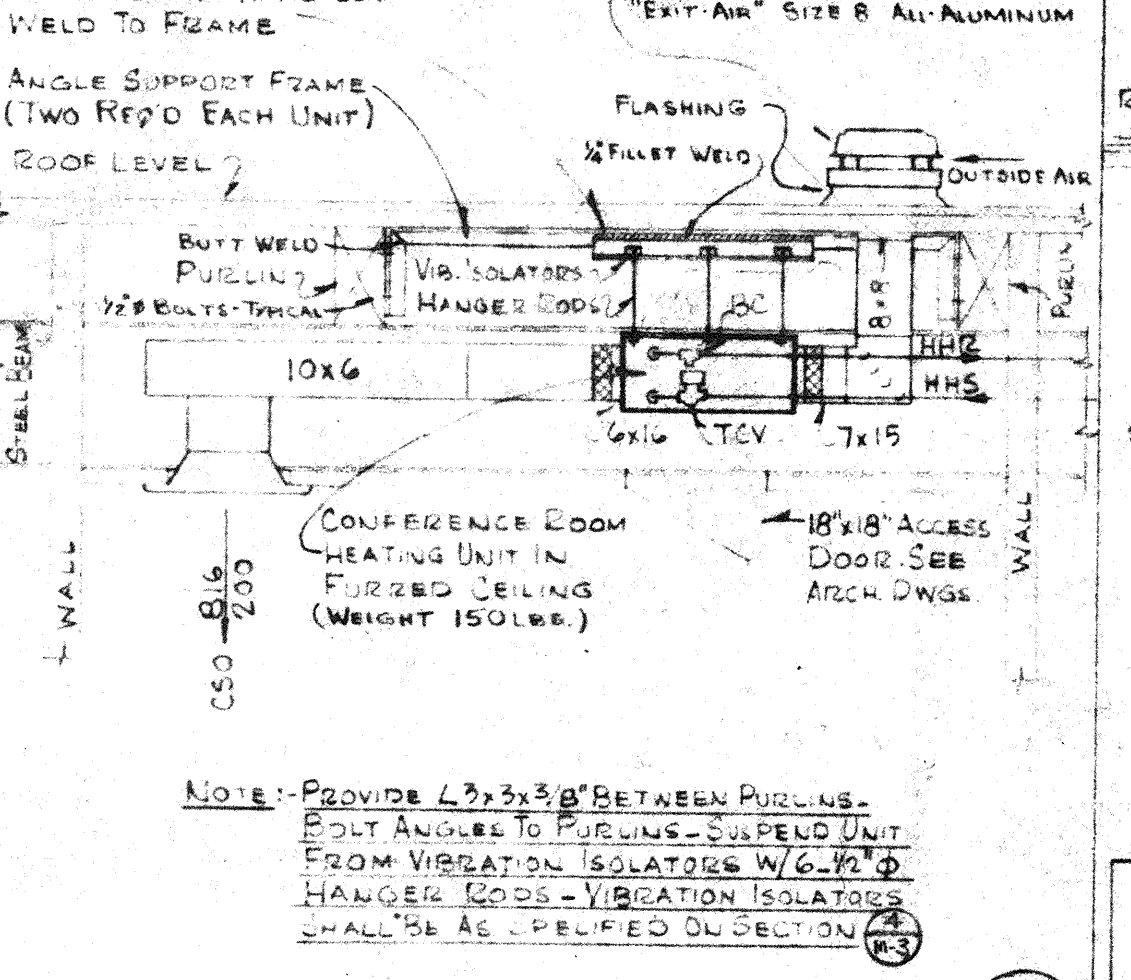 WELD TO FRAME
"EXIT-AIR" SIZE 8 ALL-ALUMINUM
ANGLE SUPPORT FRAME
(TWO REQ'D EACH UNIT)
ROOF LEVEL
FLASHING
1/4" FILLET WELD
OUTSIDE AIR
BUTT WELD
PURLIN
1/2"Φ BOLTS-TYPICAL
VIB. ISOLATORS
HANGER RODS
BC
8x8
PURLIN
STEEL BEAM
10x6
HHR
HHS
6x16
TCV
7x15
CONFERENCE ROOM
HEATING UNIT IN
FURRED CEILING
(WEIGHT 150 LBS.)
18"x18" ACCESS
DOOR. SEE
ARCH. DWGS.
WALL
WALL
CSO 816
200
NOTE:-PROVIDE L3x3x3/8" BETWEEN PURLINS-
BOLT ANGLES TO PURLINS-SUSPEND UNIT
FROM VIBRATION ISOLATORS W/6-1/2"Φ
HANGER RODS-VIBRATION ISOLATORS
SHALL BE AS SPECIFIED ON SECTION 4
M-3